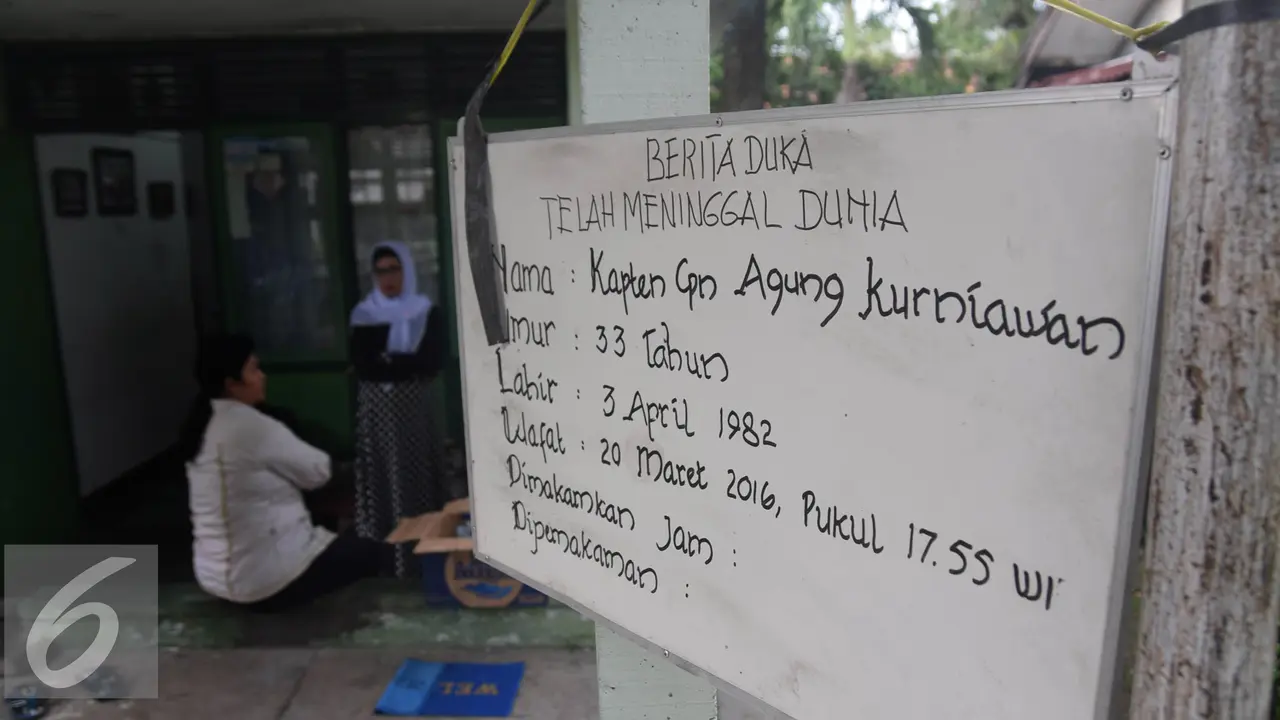 BERITA DUKA
TELAH MENINGGAL DUNIA
Nama : Kapten Cpn Agung Kurniawan
Umur : 33 Tahun
Lahir : 3 April 1982
Wafat : 20 Maret 2016, Pukul 17.55 WI
Dimakamkan Jam :
Dipemakaman :
WEL
6